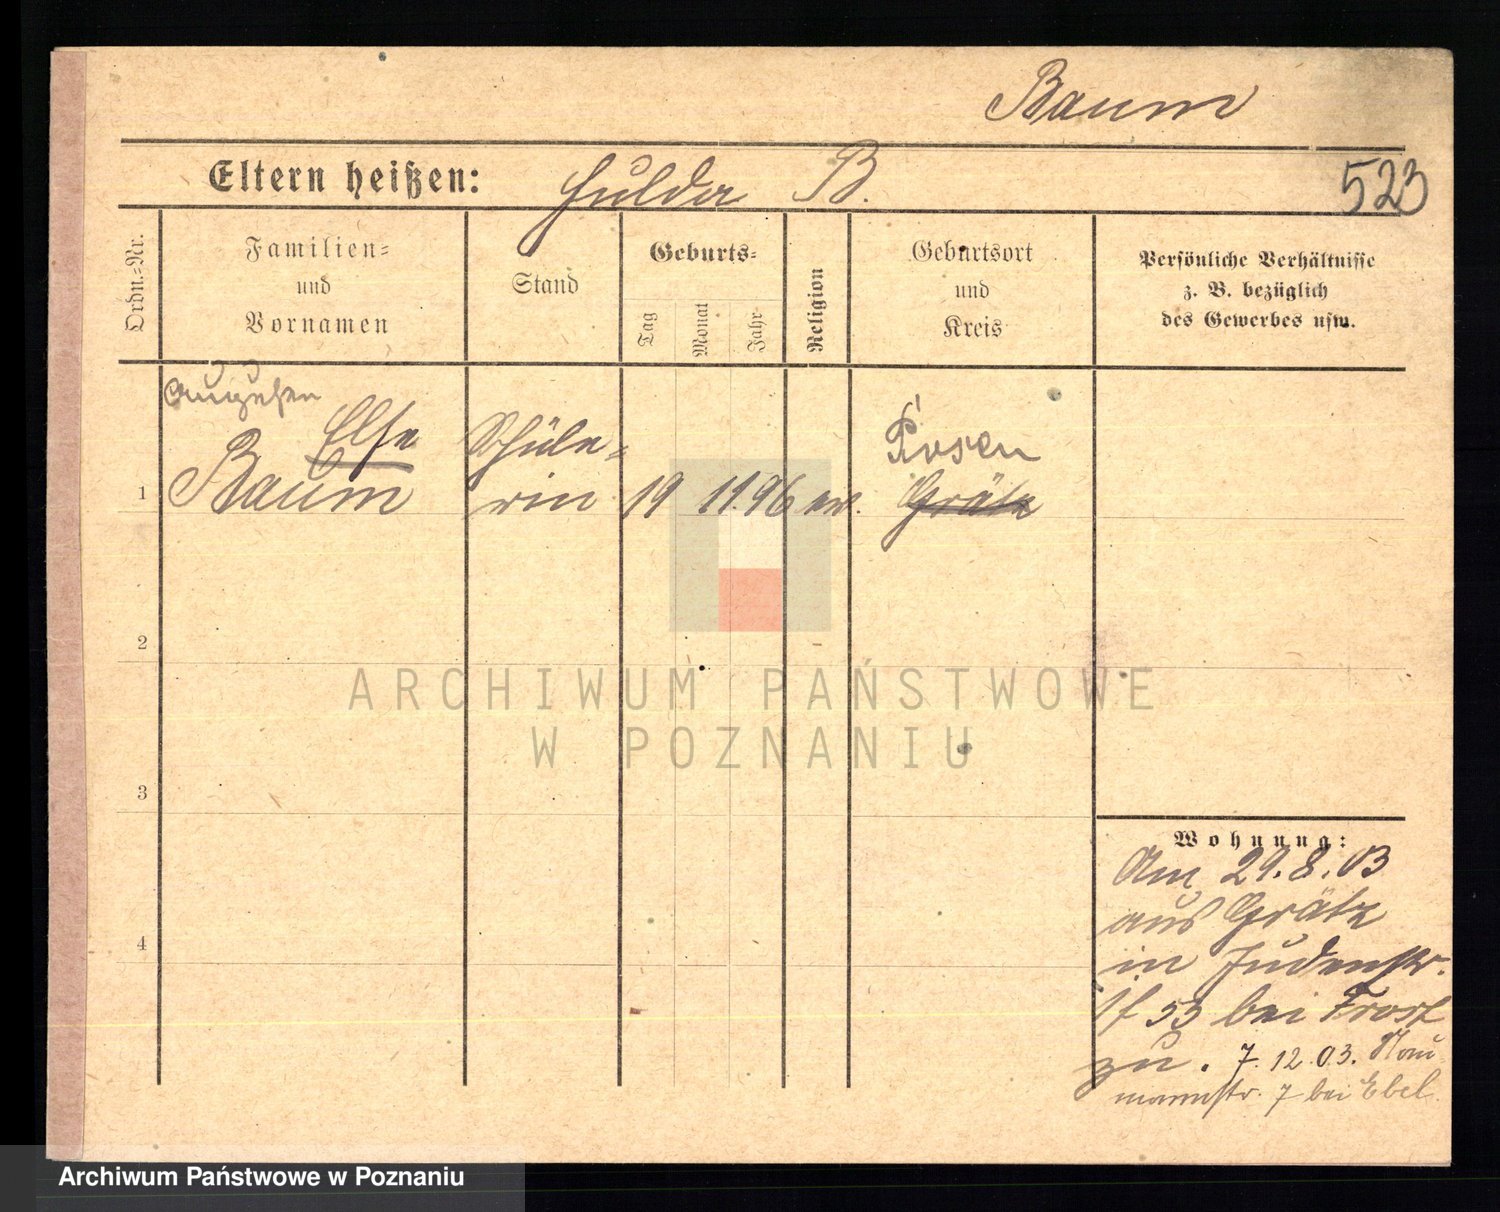 Baum
Eltern heißen: Hulda B.
523
Ordn.=Nr.
Familien=
und
Vornamen
Stand
Geburts=
Tag
Monat
Jahr
Religion
Geburtsort
und
Kreis
Persönliche Verhältnisse
z. B. bezüglich
des Gewerbes usw.
Else
Baum
Schüle=
rin
1
19 11. 96 ev.
Posen
Grätz
2
3
4
Wohnung:
Am 29.8.03
aus Grätz
in Judenstr.
53 bei Frost
zu. 7.12.03. Nau
mannstr. 7 bei Ebel.
ARCHIWUM PAŃSTWOWE
W POZNANIU
Archiwum Państwowe w Poznaniu